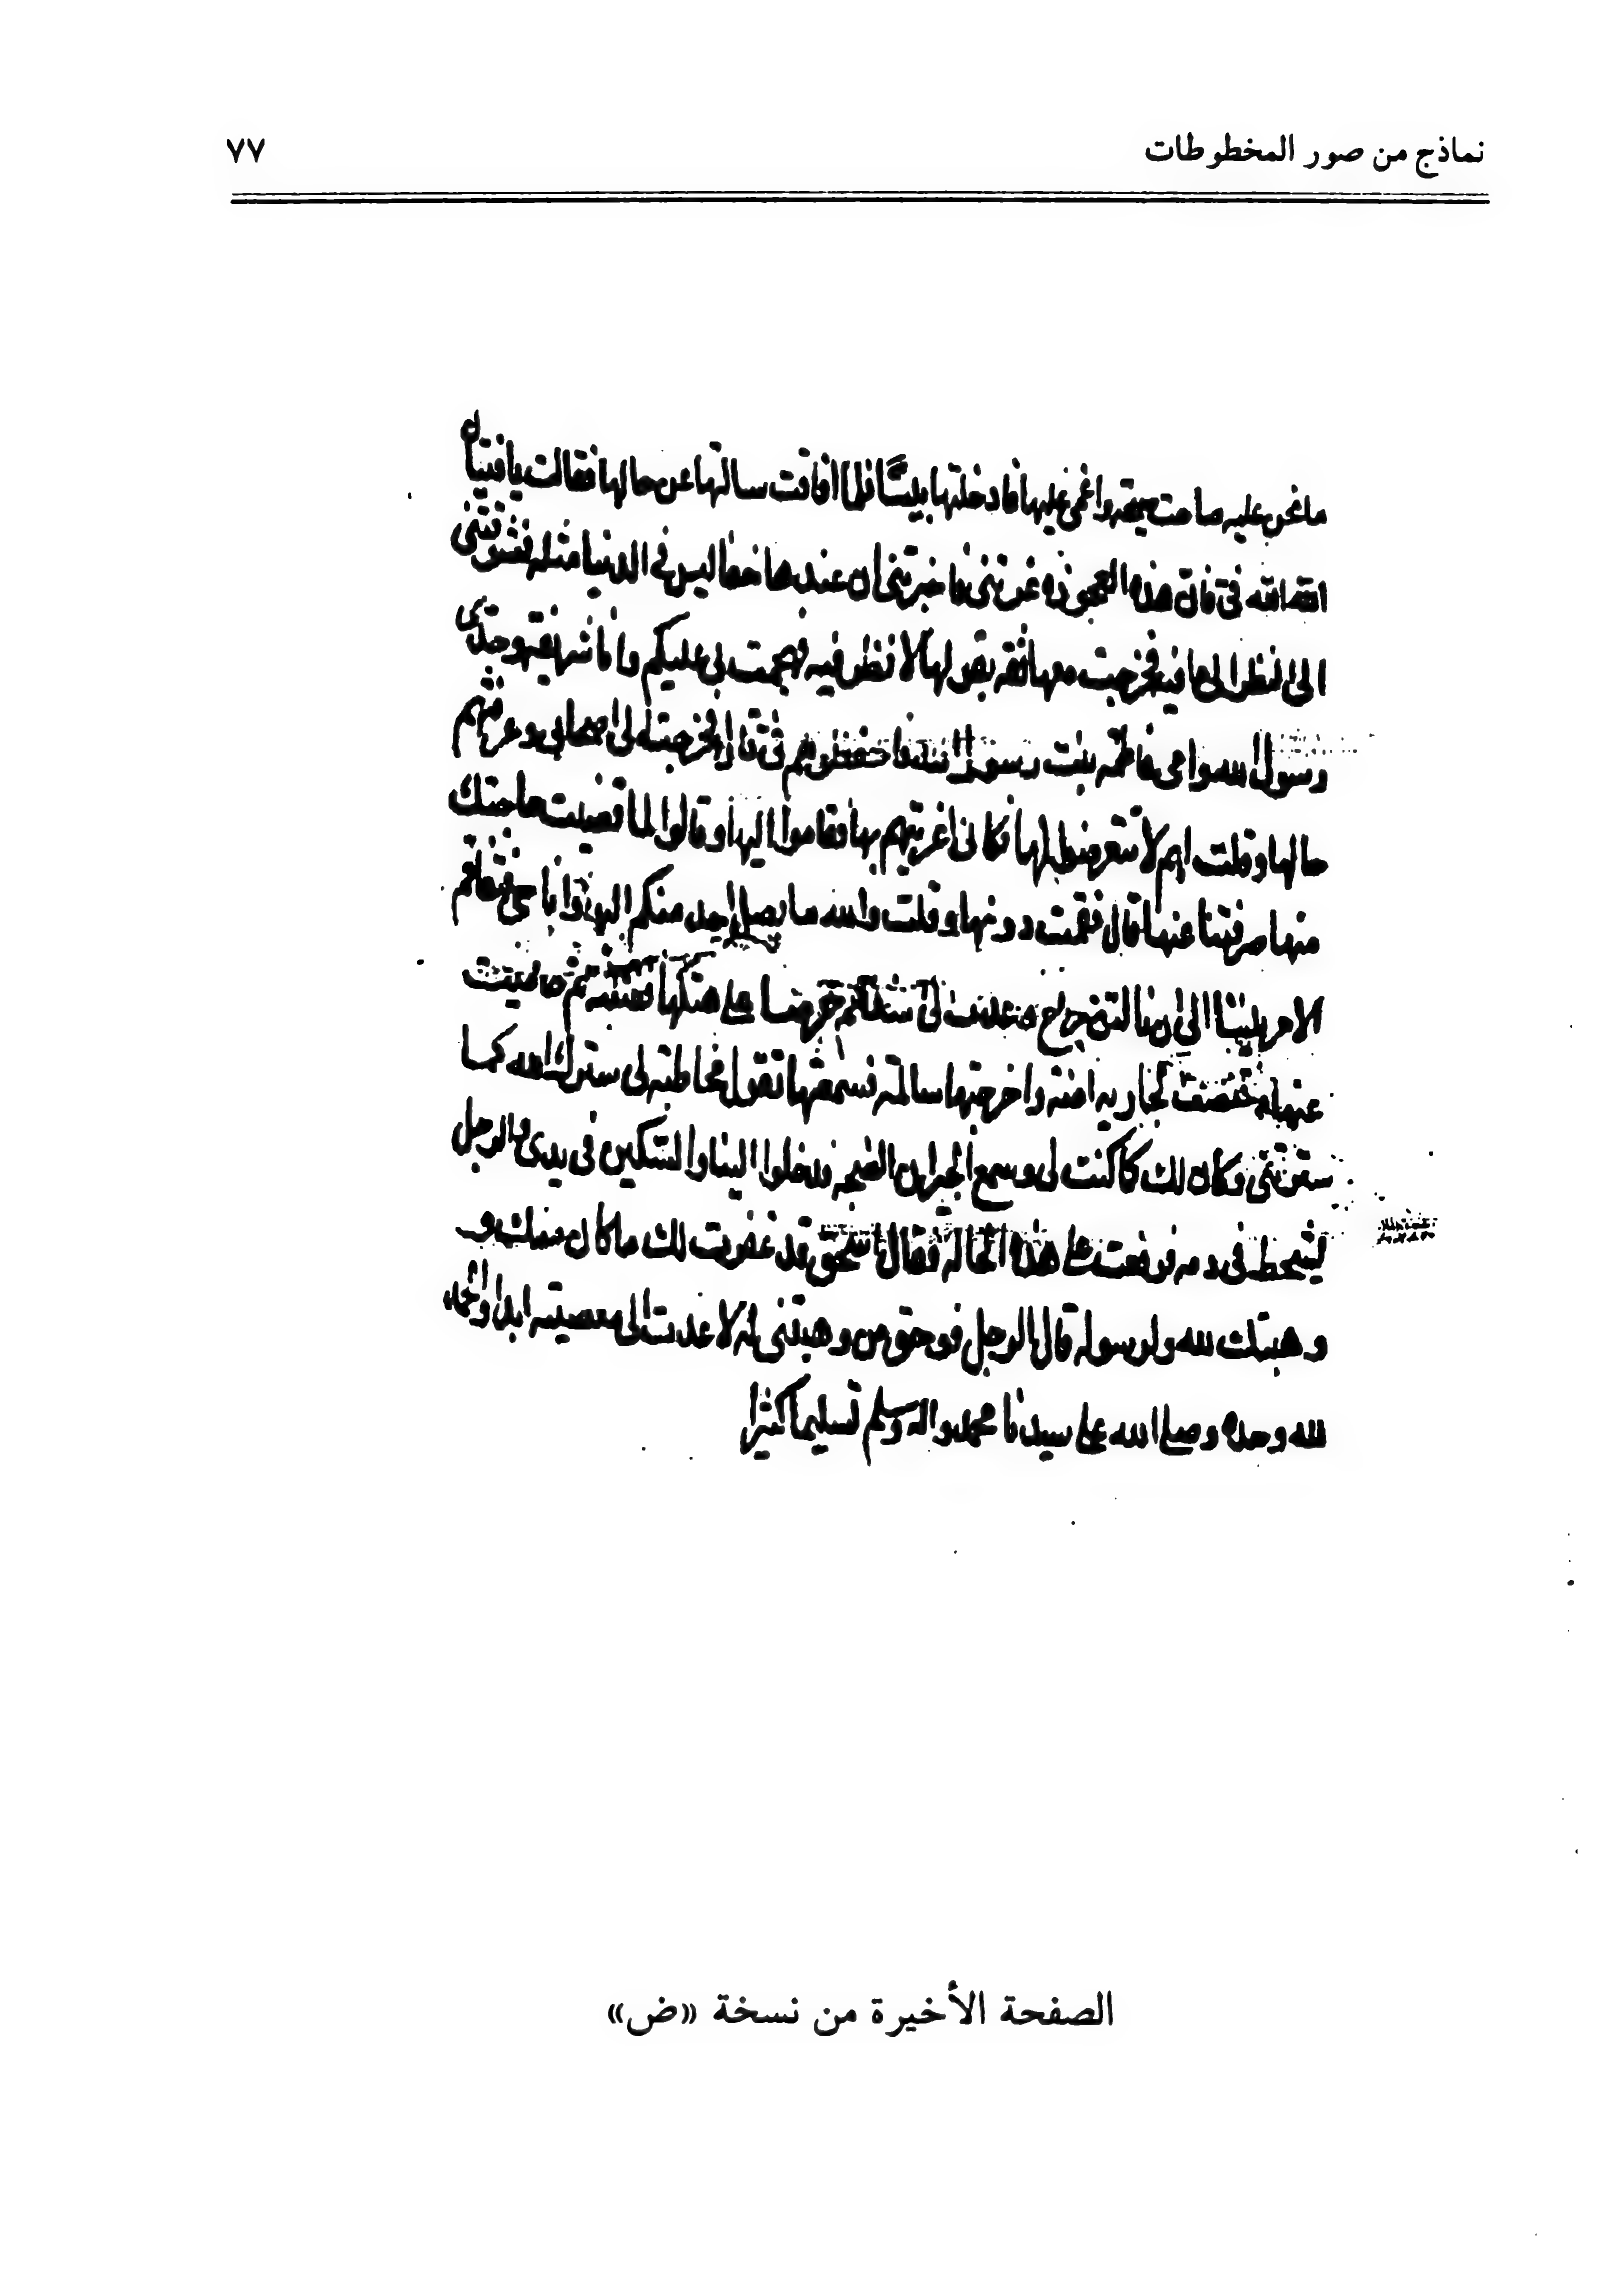 نماذج من صور المخطوطات ٧٧
ما نحن عليه صاحت صيحة واغمي عليها فادخلتها بيتًا فلما افاقت سالتها عن حالها فقالت يا فتياه
الله الله في فان هذه العجوز غرتني فاخبرتني ان عندها حقا ليس في الدنيا مثله فشوقتني
الى النظر الى ما فيه فخرجت معها ثقة بقولها لانظر فيه فهجمت بي عليكم وانا شريفة وجدي
رسول الله وامي فاطمة بنت رسول الله فاحفظوهم في قال فخرجت الى اصحابي وعرفتهم
حالها وقلت لهم لا تتعرضوا لها فكاني اغريتهم بها فقاموا اليها وقالوا لما قضيت حاجتك
منها صرفتنا عنها قال فقمت دونها وقلت والله ما يصل احد منكم اليها وانا حي فتفاقم
الامر بيننا الى ان نالتني جراح وعمدت الى اشدهم حرصا على هتكها فقتلته ثم حاميت
عنها الى ان خلصت الجارية امنة واخرجتها سالمة فسمعتها تقول مخاطبة لي سترك الله كما
سترتني وكان لك كما كنت لي وسمع الجيران الضجة فدخلوا الينا والسكين في يدي والرجل
يتشحط في دمه فرفعت على هذه الحالة فقال اسحق قد غفرت لك ما كان منك و
وهبتك لله ولرسوله قال الرجل فوحق من وهبتني له لا عدت الى معصيته ابدا والحمد
لله وحده وصلى الله على سيدنا محمد واله وسلم تسليما كثيرا
الصفحة الأخيرة من نسخة «ض»